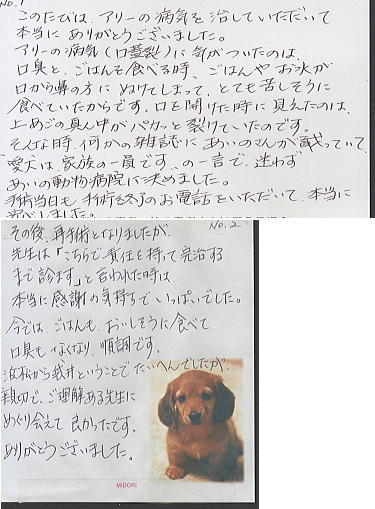 No.1
このたびは、アリーの病気を治していただいて
本当に ありがとうございました。
アリーの病気(口蓋裂)に気がついたのは、
口臭と、ごはんを食べる時、ごはんや お水が
口から鼻の方に ぬけてしまって、とても苦しそうに
食べていたからです。口を開けた時に見えたのは、
上あごの真ん中が パカッと 裂けていたのです。
そんな時、何かの雑誌に あいのさんが 載っていて
愛犬は、家族の一員です、の一言で、迷わず
あいの動物病院に決めました。
手術当日も 手術終了の お電話を いただいて、本当に
No.2
その後、再手術となりましたが
先生は「こちらで責任を持って完治する
まで 診ます」と 言われた時は
本当に 感謝の気持ちで いっぱいでした。
今では、ごはんも、おいしそうに食べて
口臭も なくなり、順調です。
浜松から袋井ということで たいへんでしたが
親切で、ご理解ある先生に
めぐり会えて 良かったです。
ありがとうございました。
MIDORI